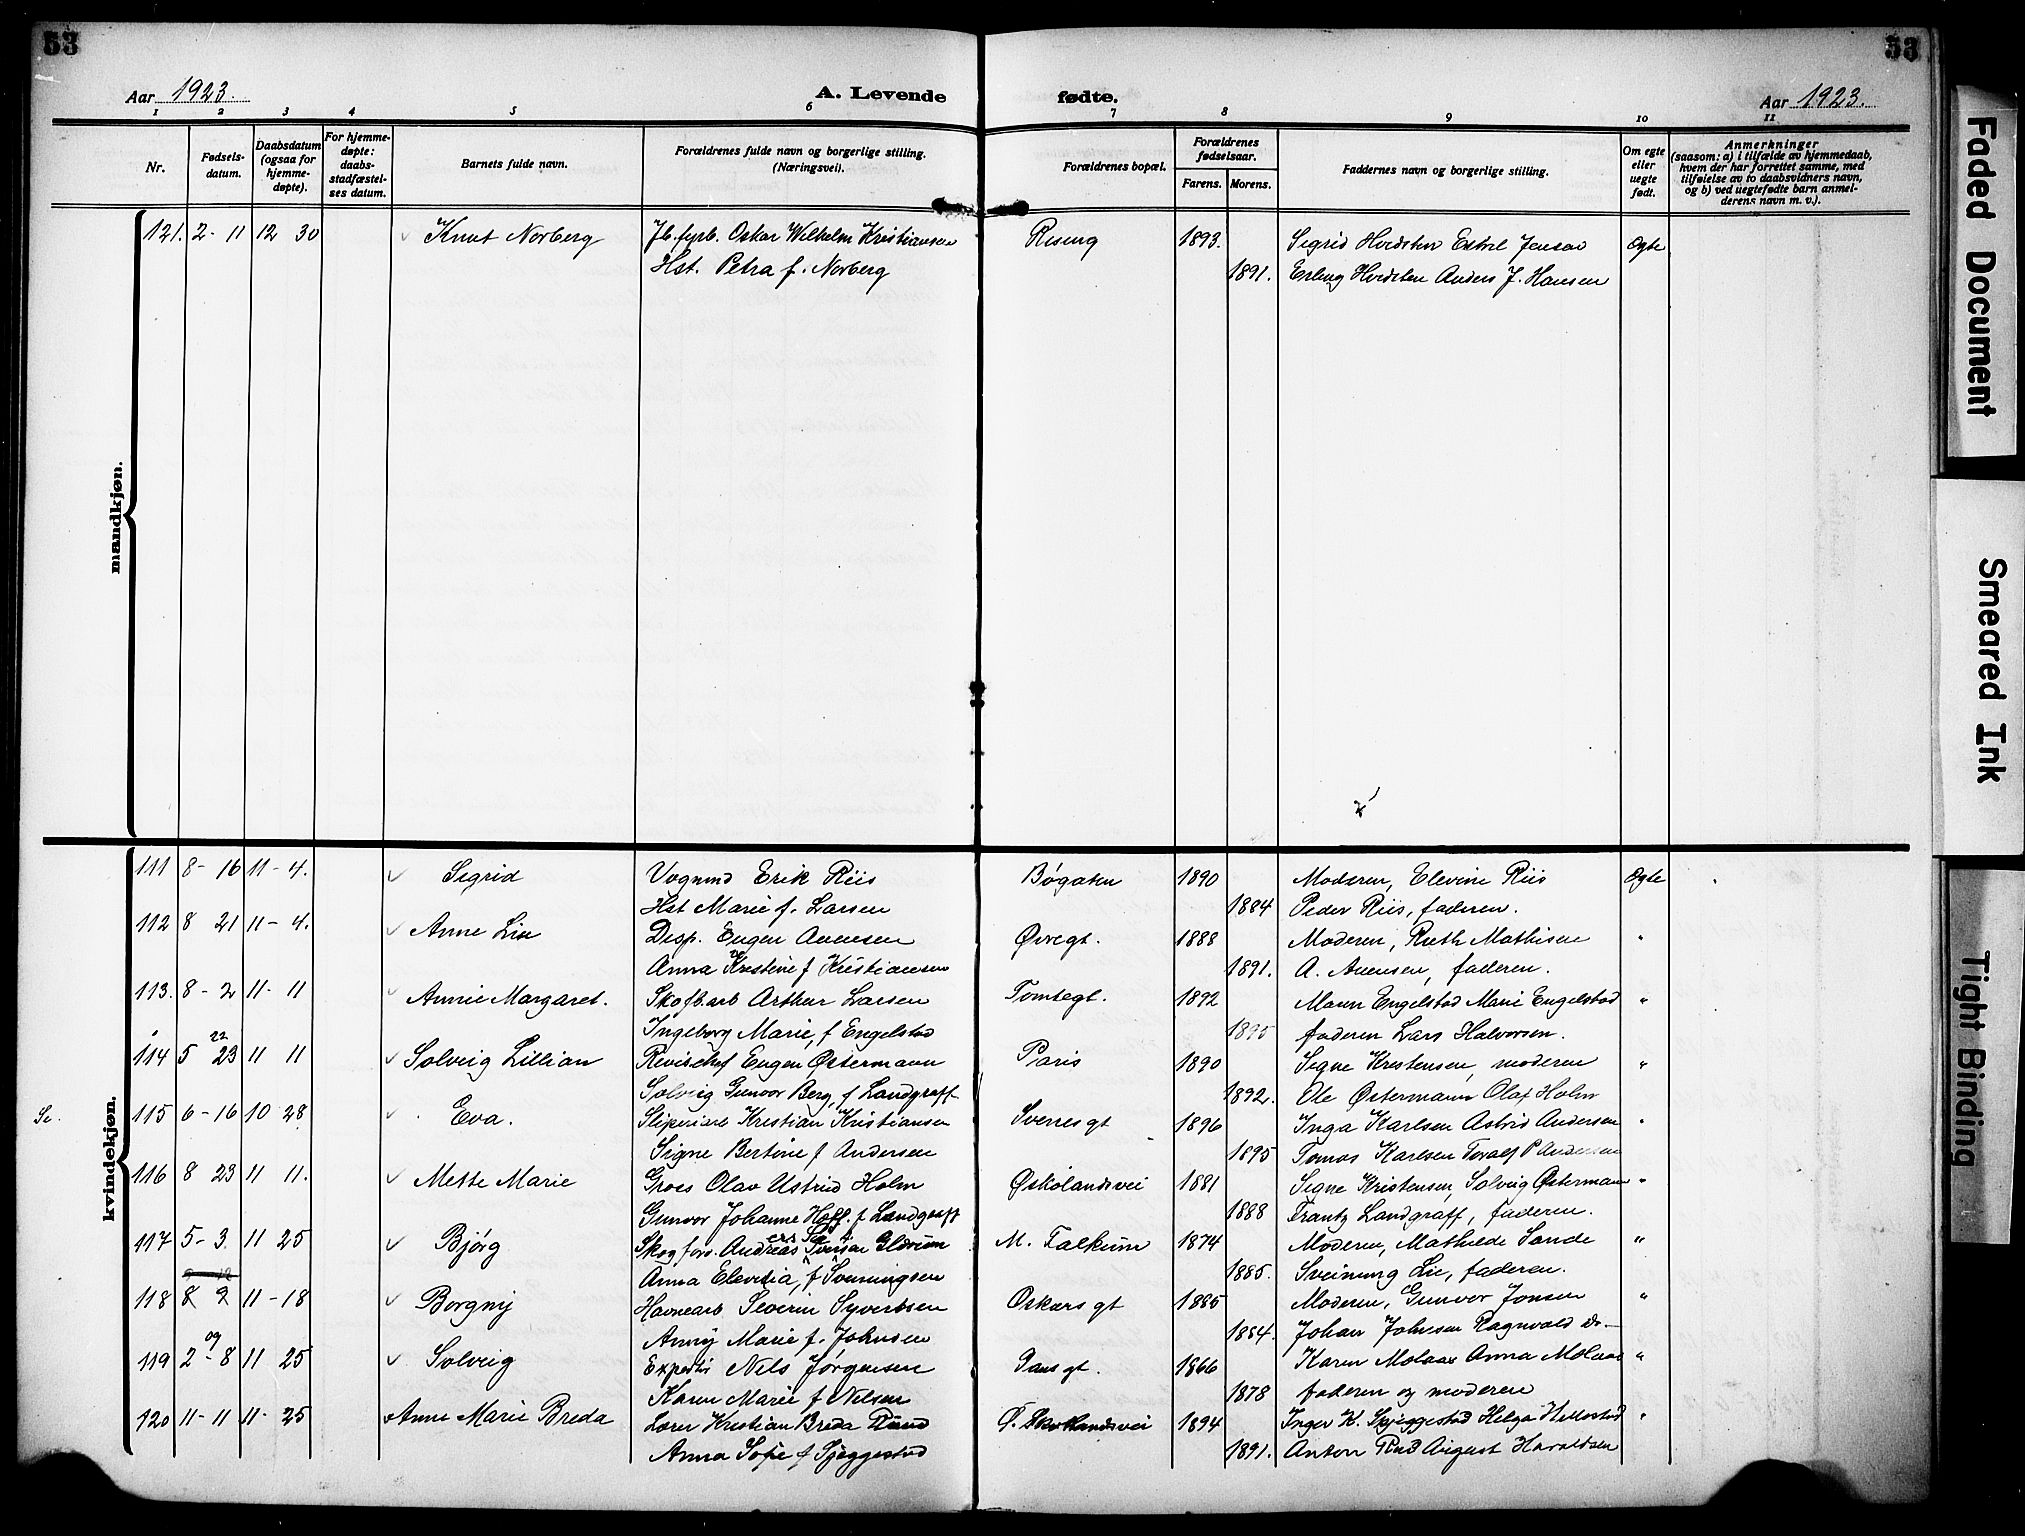 53
53
Aar 1923.
A. Levende
fødte.
Aar 1923.
1 2 3 4 5 6 7 8 9 10 11
Nr.
Fødsels-datum.
Daabsdatum (ogsaa for hjemme-døpte).
For hjemme-døpte: daabs-stadfæstel-ses datum.
Barnets fulde navn.
Forældrenes fulde navn og borgerlige stilling. (Næringsvei).
Forældrenes bopæl.
Forældrenes fødselsaar.
Farens. Morens.
Faddernes navn og borgerlige stilling.
Om egte eller uegte født.
Anmerkninger (saasom: a) i tilfælde av hjemmedaab, hvem der har forrettet samme, med tilføielse av to daabsvidners navn, og b) ved uegtefødte barn anmel-derens navn m. v.).
mandkjøn.
121. 2- 11 12 30 Knut Norberg Jb. fyrb. Oskar Wilhelm Kristiansen Rising 1893. Sigrid Hvidsten Jensen Egte
Hst. Petra f. Norberg 1891. Erling Hvidsten Anders J. Hansen
kvindekjøn.
111 8- 16 11- 4. Sigrid Vognmd Erik Riis Bøgaten 1890 Moderen, Elevine Riis Egte
Hst Marie f. Larsen 1884 Peder Riis, faderen.
112 8 21 11- 4. Anne Lise Disp. Eugen Avensen Øvregt. 1888 Moderen, Ruth Mathisen "
Anna Kristine f Kristiansen 1891. A. Avensen, faderen.
113. 8- 2 11- 11 Annie Margaret. Skofb.arb Arthur Larsen Tomtegt. 1892 Maren Engelstad Marie Engelstad "
Ingeborg Marie, f Engelstad 1895 faderen Lars Halvorsen.
22
114 5 23 11 11 Solveig Lillian Revischef Eugen Østermann Paris 1890 Signe Kristensen, moderen "
Solveig Gunvor Berg, f Landgraff 1892. Ole Østermann Olaf Holm
115 6-16 10 28 Eva. Sliperiarb Kristian Kristiansen Sverresgt 1896 Inga Karlsen Astrid Andersen "
Signe Bertine f Andersen 1895 Tomas Karlsen Toralf P Andersen
116 8 23 11 11. Mette Marie Gros Olav Astrid Holm Øskolandsvei 1881 Signe Kristensen, Solveig Østermann "
Gunvor Johanne Hoff. f Landgraff 1888 Frantz Landgraff, faderen.
117 5-3. 11 25 Bjørg Skogforv. Andreas Gldrum M. Falkum 1874 Moderen, Mathilde Sande "
Anna Elevitia, f Svenningsen 1885. Sveinung Lie, faderen.
118 8 2 11-18 Borgny Havnearb Severin Syvertsen Oskars gt 1885 Moderen, Gunvor Jonsen "
Anny Marie f. Johnsen 1884. Johan Johnsen Ragnvald do-
119 2-8 11 25 Solveig Expeditr Nils Jørgensen Pans gt. 1866 Karen Molaas Anna Molaas "
Karen Marie f Nilsen 1878 faderen og moderen
120 11-11 11- 25 Anne Marie Breda Lærer Kristian Breda Tund Ø. Skotlandsvei 1894 Inger K. Skjeggestad Helga Hillestad "
Anna Sofie f Skjeggestad 1891. Anton Rud August Haraldsen
Faded Document
Smeared Ink
Tight Binding